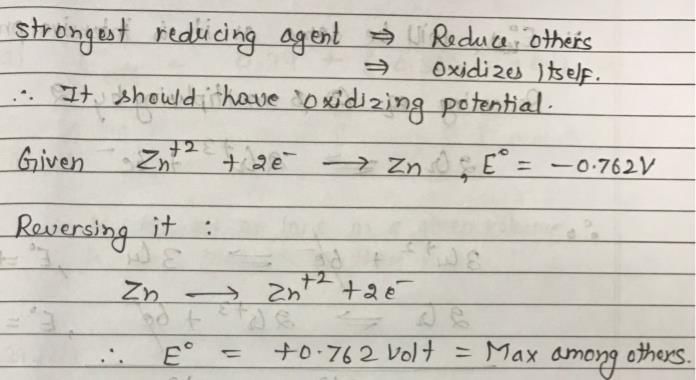 strongest reducing agent ⇒ Reduce others
⇒ oxidizes itself.
∴ It should have oxidizing potential.
Given Zn⁺² + 2e⁻ → Zn , E° = -0.762V
Reversing it :
Zn → Zn⁺² + 2e⁻
∴ E° = +0.762 Volt = Max among others.